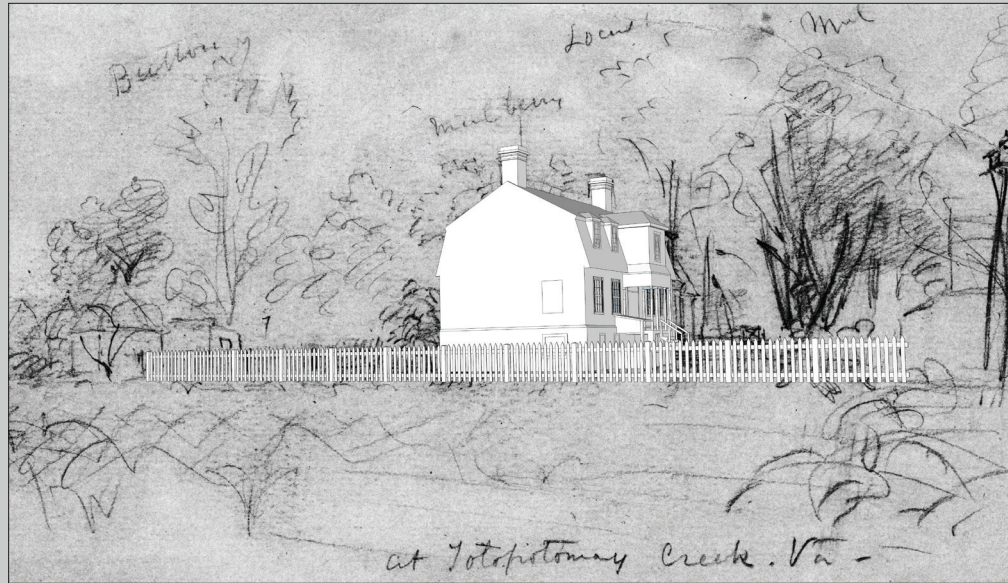 Locust
Mul
Mulberry
at Totopotomay Creek. Va -